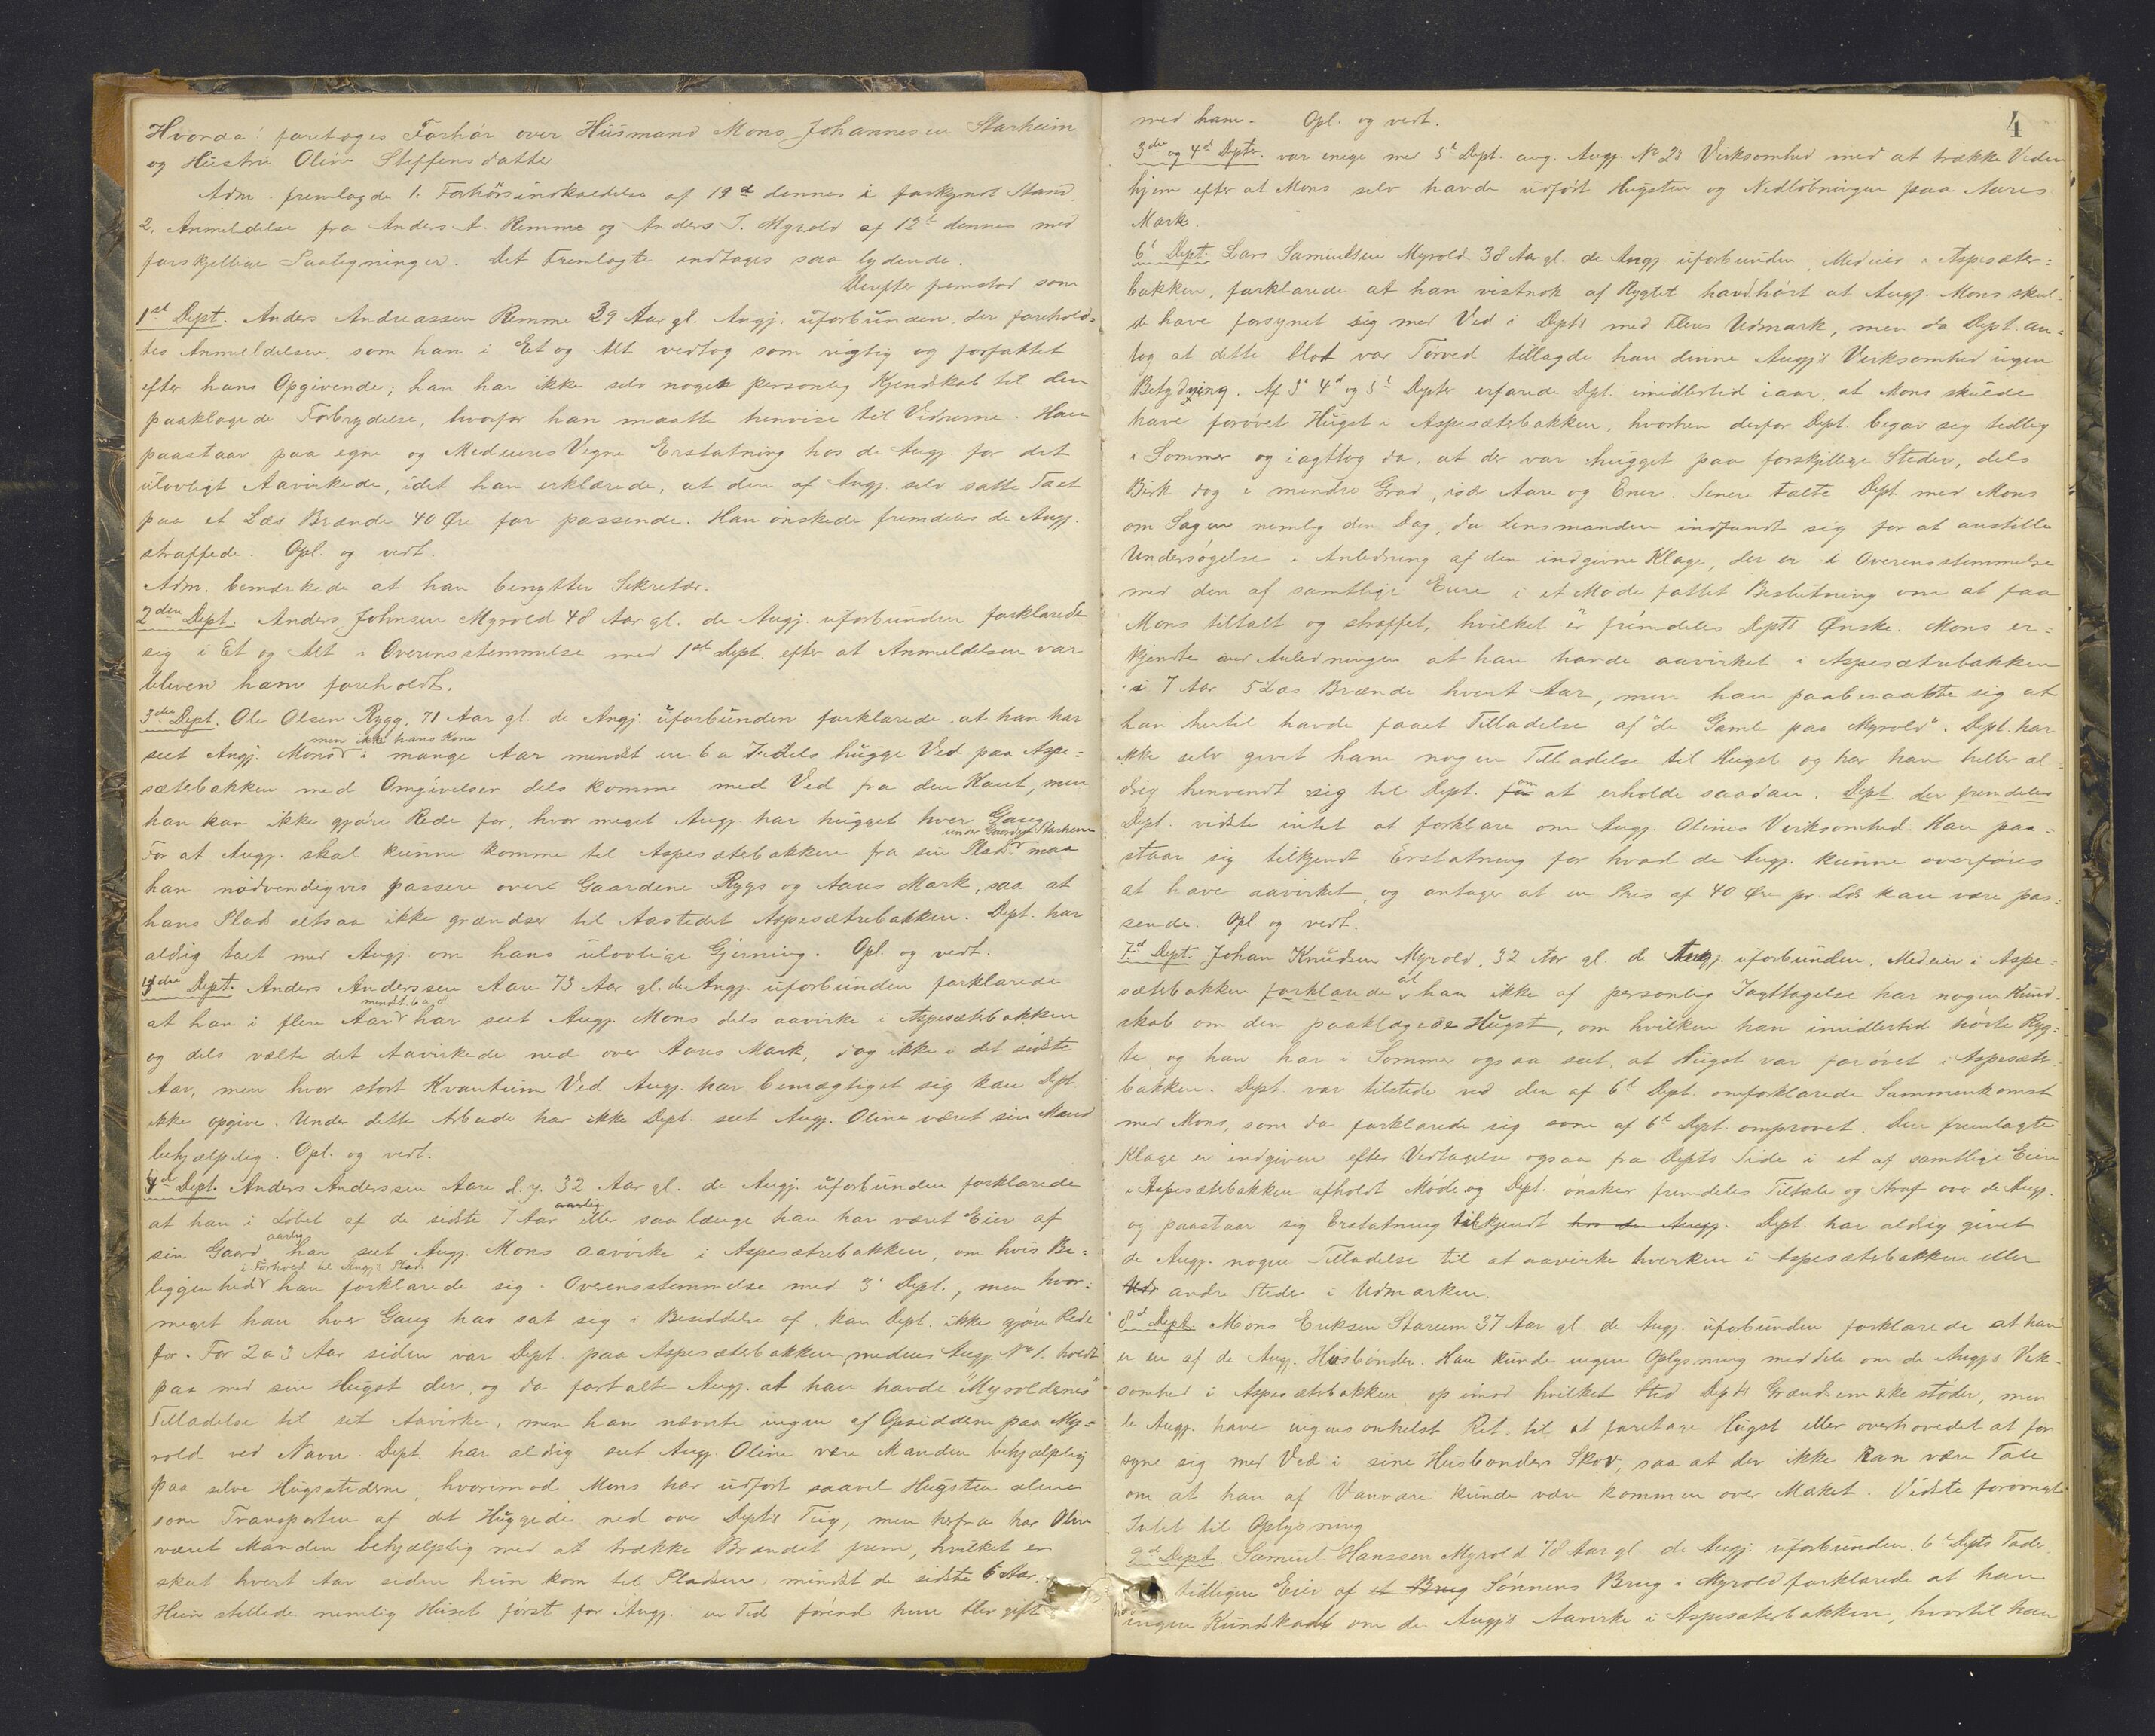 Hvorda! foretoges Forhør over Husmand Mons Johannesen Starheim
og Hustru Oline Steffensdatter
Adm. fremlagde 1. Forhørsindkaldelse af 19de dennes i forkyndt Stand.
2. Anmeldelse fra Anders A. Remme og Anders J. Myrold af 12t dennes med
forskjellige Paategninger. Det Fremlagte indtages saa lydende.
Derefter fremstod som
1st Dept. Anders Andreassen Remme 39 Aar gl. Angj. uforbunden. der forehold=
tes Anmeldelsen, som han i Et og Alt vedtog som rigtig og forfattet
efter hans Opgivende; han har ikke selv nogen personlig Kjendskab til den
paaklagede Forbrydelse, hvorfor han maatte henvise til Vidnerne. Han
paastaar paa egne og Medeieres Vegne Erstatning hos de Angj. for det
ulovligt Aavirkede, idet han erklærede, at den af Angj. selv satte Taxt
paa et Læs Brænde 40 Øre for passende. Han ønskede fremdeles de Angj.
straffede. Opl. og vedt.
Adm. bemærkede at han benytter Sekretær.
2den Dept. Anders Johnsen Myrold 48 Aar gl. de Angj. uforbunden forklarede
sig i Et og Alt i Overensstemmelse med 1st Dept. efter at Anmeldelsen var
bleven ham foreholdt.
3die Dept. Ole Olsen Rygg, 71 Aar gl. de Angj. uforbunden forklarede, at han har
men ikke hans Kone
seet Angj. Mons i mange Aar mindst en 6 a 7 dels hugge Ved paa Aspe=
sæterbakken med Omgivelser dels komme med Ved fra den Kant, men
han kan ikke gjøre Rede for, hvor meget Angj. har hugget hver Gang.
under Gaarden Starheim
For at Angj. skal kunne komme til Aspesæterbakken fra sin Plads maa
han nødvendigvis passere over Gaardene Ryggs og Aares Mark, saa at
hans Plads altsaa ikke grændser til Aastedet Aspesætrebakken. Dept. har
aldrig talt med Angj. om hans ulovlige Gjerning. Opl. og vedt.
4de Dept. Anders Anderssen Aare 73 Aar gl. de Angj. uforbunden forklarede
mindst 6 a 8
at han i flere Aar har seet Angj. Mons dels aavirke i Aspesæterbakken
og dels vælte det Aavirkede ned over Aares Mark, dog ikke i det sidste
Aar, men hvor stort Kvantum Ved Angj. har bemægtiget sig kan Dept.
ikke opgive. Under dette Arbeide har ikke Dept. seet Angj. Oline været sin Mand
behjælpelig. Opl. og vedt.
Dept. Anders Anderssen Aare d.y. 32 Aar gl. de Angj. uforbunden forklarede
at han i Løbet af de sidste 7 Aar aarlig eller saa længe han har været Eier af
aarlig
sin Gaard har seet Angj. Mons aavirke i Aspesætrebakken, om hvis Be=
i Forhold til Angj's Plads
liggenhed han forklarede sig i Overensstemmelse med 3' Dept., men hvor=
meget han hver Gang har sat sig i Besiddelse af, kan Dept. ikke gjøre Rede
for. For 2 a 3 Aar siden var Dept. paa Aspesæterbakken, medens Angj. No 1. holdt
paa med sin Hugst der, og da fortalte Angj. at han havde "Myroldernes"
Tilladelse til sit Aavirke, men han nævnte ingen af Opsidderne paa My=
rold ved Navn. Dept. har aldrig seet Angj. Oline være Manden behjælpelig
paa selve Hugstederne, hvorimod Mons har udført saavel Hugsten alene
som Transporten af det Huggede ned over Dept's Teig, men herfra har Oline
været Manden behjælpelig med at trække Brændet frem, hvilket er
skeet hvert Aar siden hun kom til Pladsen, mindst de sidste 6 Aar.
Hun stillede nemlig Huset først for Angj. en Tid førend hun blev gift
4
med ham. Opl. og vedt.
3die og 4d Depter. var enige med 5t Dept. ang. Angj. No 2s Virksomhed med at trække Veden
hjem efter at Mons selv havde udført Hugsten og Nedløbningen paa Aares
Mark.
6t Dept. Lars Samuelsen Myrold 38 Aar gl. de Angj. uforbunden, Medeier i Aspesæter=
bakken, forklarede at han vistnok af Rygtet havde hørt at Angj. Mons skul=
de have forsynet sig med Ved i Depts med Fleres Udmark, men da Dept. an=
tog at dette blot var Tørved tillagde han denne Angj's Virksomhed ingen
Betydning. Af 3' 4d og 5t Depter erfarede Dept. imidlertid iaar, at Mons skulde
have forøvet Hugst i Aspesæterbakken, hvorhen derfor Dept. begav sig tidlig
i Sommer og iagttog da, at der var hugget paa forskjellige Steder, dels
Birk dog i mindre Grad, især Aare og Ener. Senere talte Dept med Mons
om Sagen nemlig den Dag, da Lensmanden indfandt sig for at anstille
Undersøgelse i Anledning af den indgivne Klage, der er i Overensstemmelse
med den af samtlige Eiere i et Møde fattet Beslutning om at faa
Mons tiltalt og straffet, hvilket er fremdeles Depts Ønske. Mons er=
kjendte ved Anledningen at han havde aavirket i Aspesætrebakken
i 7 Aar 5 Læs Brænde hvert Aar, men han paaberaabte sig at
han hertil havde faaet Tilladelse af "de Gamle paa Myrold". Dept. har
ikke selv givet ham nogen Tilladelse til Hugst og har han heller al=
drig henvendt sig til Dept. om at erholde saadan. Dept. der fremdeles
Dept. vidste intet at forklare om Angj. Olines Virksomhed. Han paa=
staar sig tilkjendt Erstatning for hvad de Angj. kunne overføres
at have aavirket, og antager at en Pris af 40 Øre pr. Læs kan være pas=
sende. Opl. og vedt.
7d Dept. Johan Knudsen Myrold, 32 Aar gl. de Angj. uforbunden, Medeier i Aspe=
sæterbakken forklarede at han ikke af personlig Iagttagelse har nogen Kund=
skab om den paaklagede Hugst, om hvilken han imidlertid hørte Ryg=
te, og han har i Sommer ogsaa seet, at Hugst var forøvet i Aspesæter
bakken. Dept. var tilstede ved den af 6t Dept. omforklarede Sammenkomst
med Mons, som da forklarede sig som af 6t Dept. omprovet. Den fremlagte
Klage er indgiven efter Vedtagelse ogsaa fra Depts Side i et af samtlige Eiere
i Aspesæterbakken afholdt Møde, og Dept. ønsker fremdeles Tiltale og Straf over de Angj.
og paastaar sig Erstatning tilkjendt hos de Angj. Dept. har aldrig givet
de Angj. nogen Tilladelse til at aavirke hverken i Aspesæterbakken eller
Uds andre Steder i Udmarken.
8d Dept. Mons Eriksen Stareim 37 Aar gl. de Angj. uforbunden forklarede at han
er en af de Angj. Husbonder. Han kunde ingen Oplysning meddele om de Angj's Virk=
somhed i Aspesæterbakken, op imod hvilket Sted Dept's Grændse ikke støder, men
de Angj. have ingensomhelst Ret til at foretage Hugst eller overhovedet at for
syne sig med Ved i sine Husbonders Skov, saa at der ikke kan være Tale
om at han af Vanvare kunde være kommen over Mærket. Vidste forøvrigt
Intet til Oplysning
9d Dept. Samuel Hanssen Myrold 78 Aar gl. de Angj. uforbunden. 6t Depts Fader,
tidligere Eier af et Brug Sønnens Brug i Myrold forklarede at han
ingen Kundskab om de Angj's Aavirke i Aspesæterbakken, hvortil han